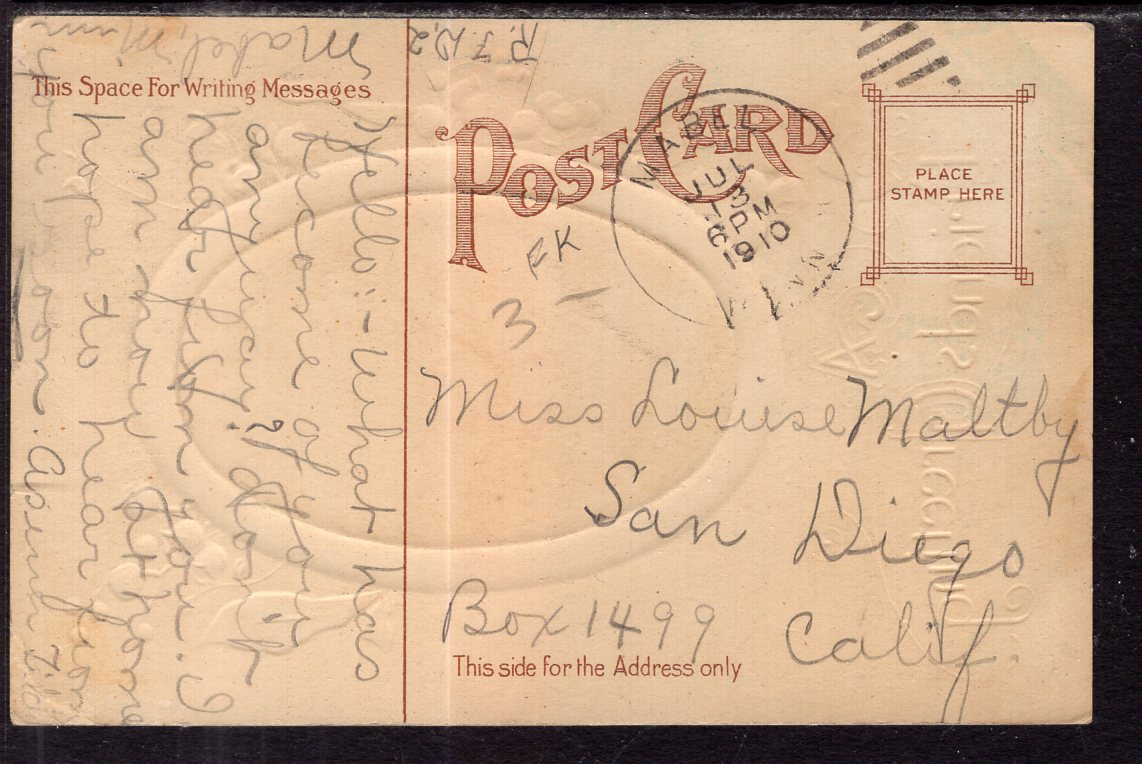 This Space For Writing Messages
R. F. D. 2
Mabel, Minn
Hello:- What has
become of you
anyway? I don't
hear from you. I
am now at home
hope to hear from
you soon.
POST CARD
MABEL
JUL
13
6 PM
1910
MINN
PLACE
STAMP HERE
FK
3 –
Miss Louise Maltby
San Diego
Box 1499 Calif.
This side for the Address only